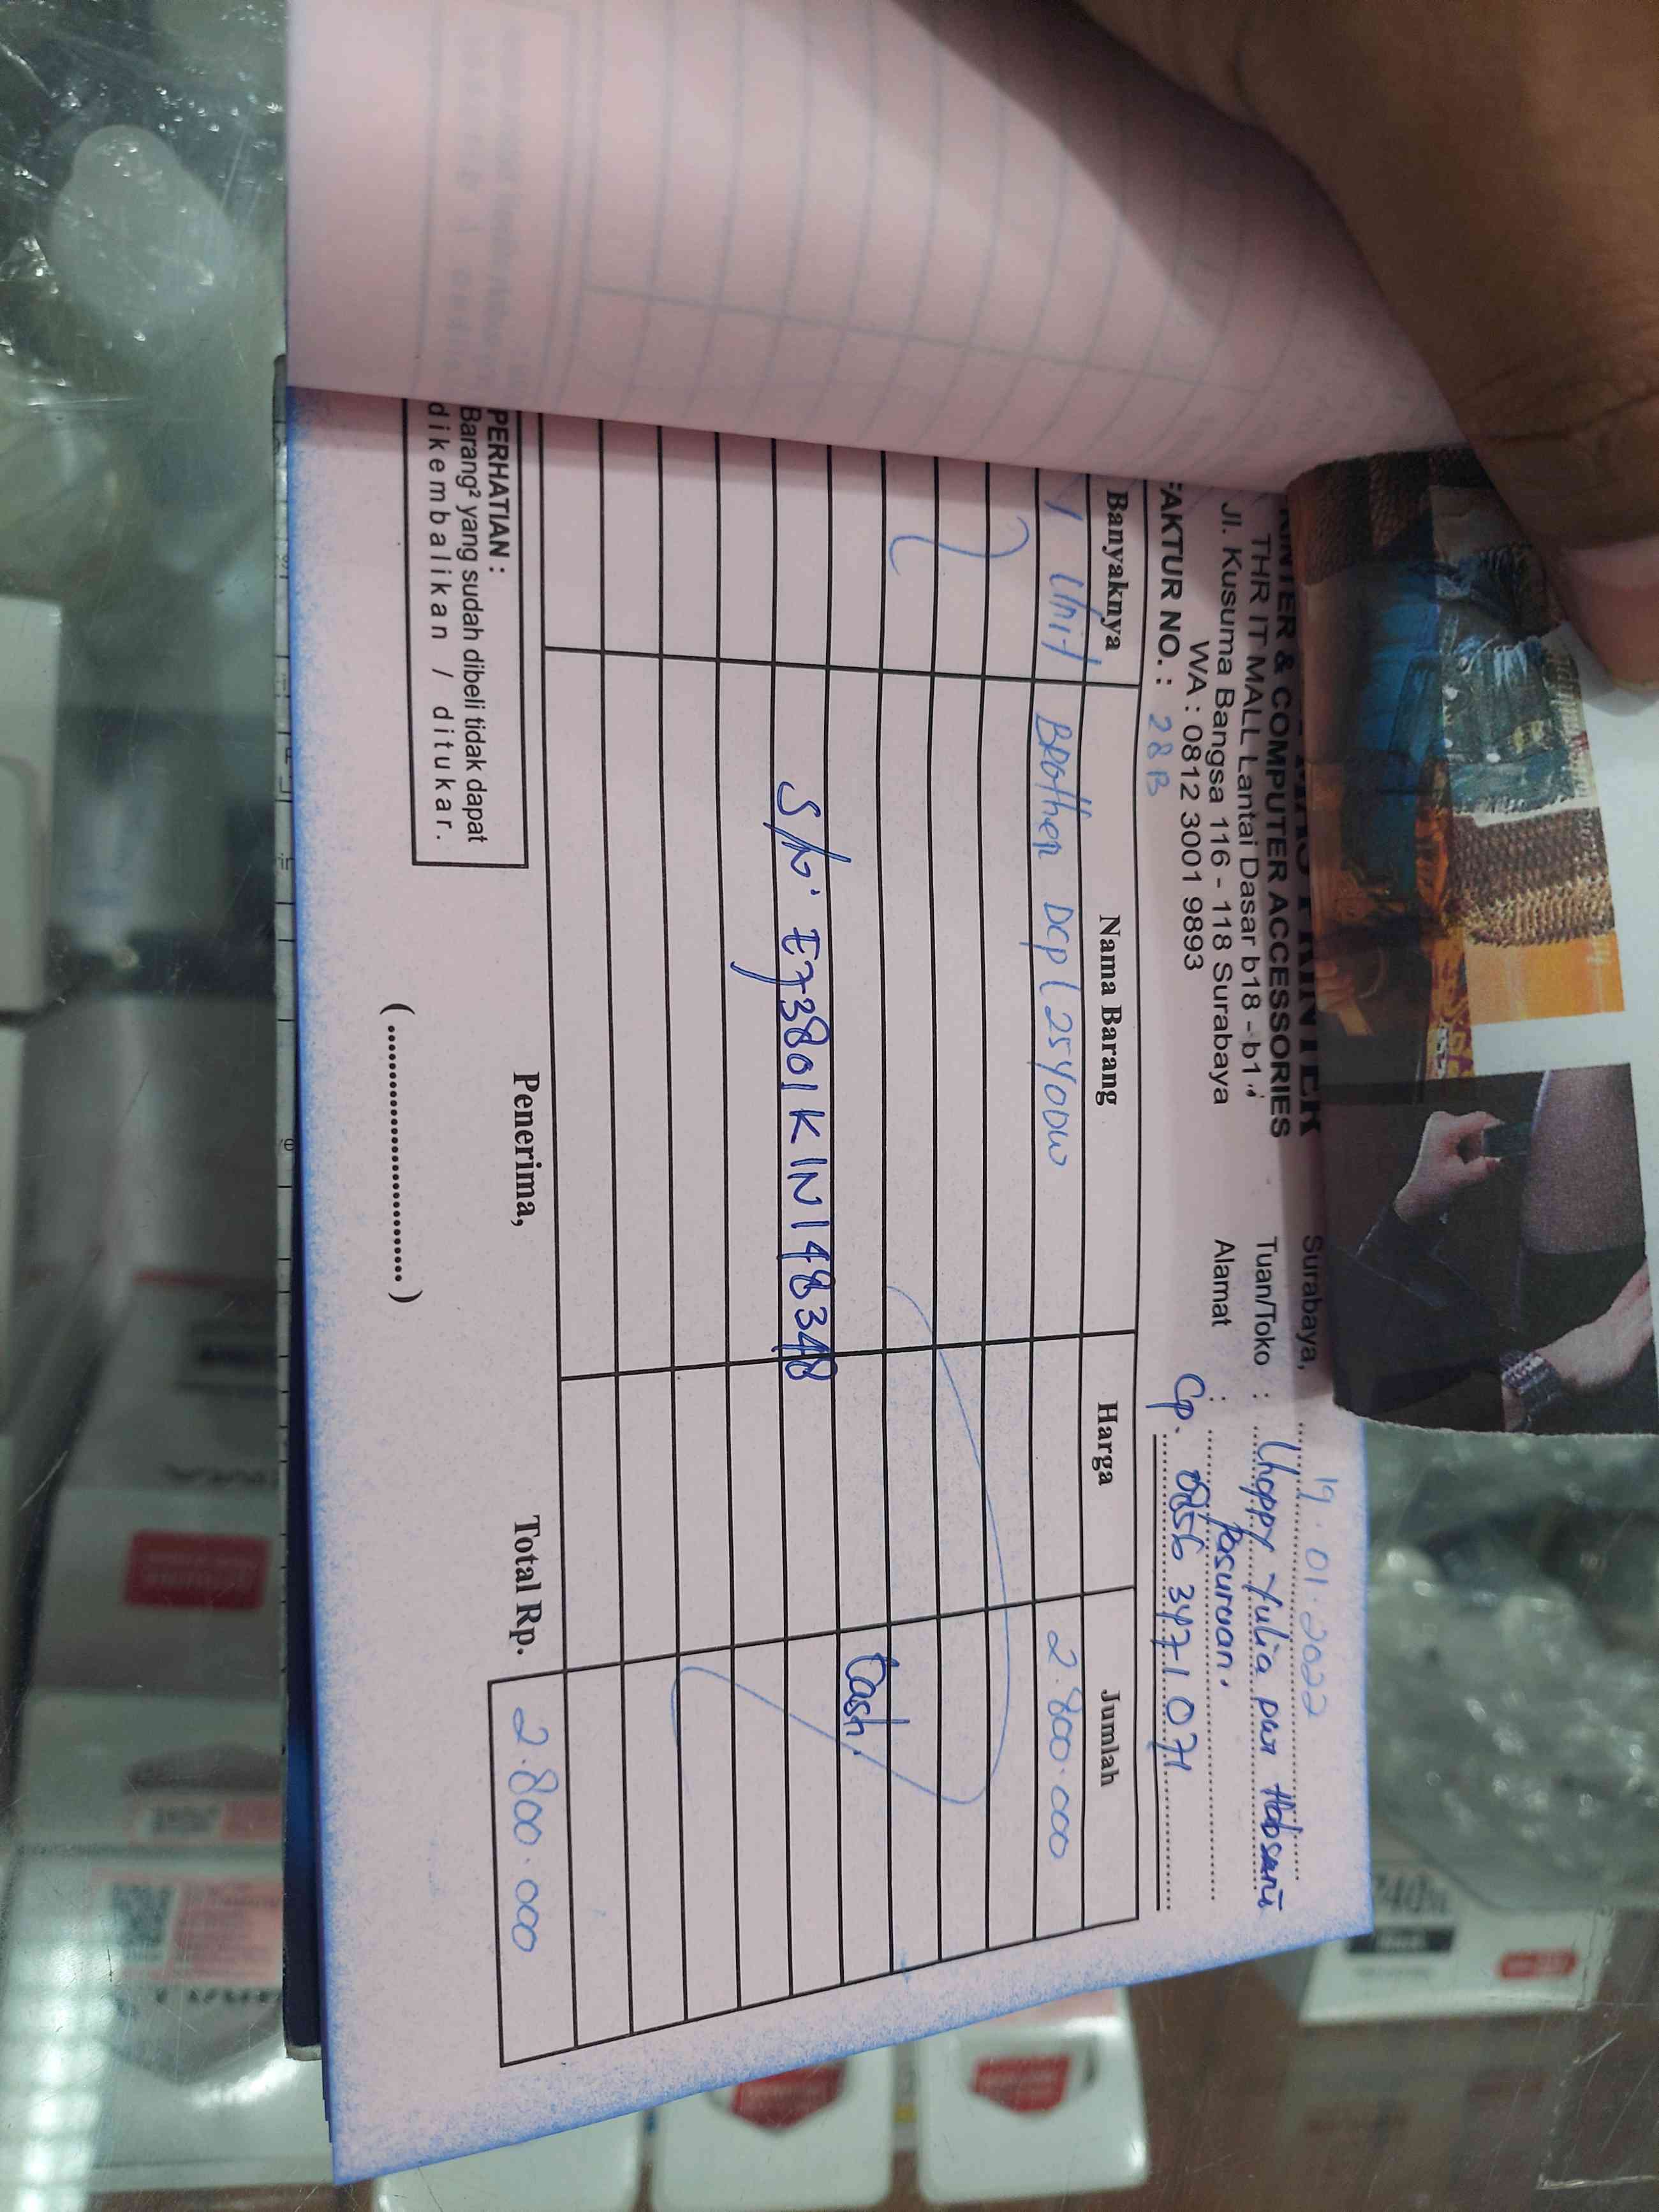 & COMPUTER ACCESSORIES
THR IT MALL Lantai Dasar b18 - b1
Jl. Kusuma Bangsa 116 - 118 Surabaya
WA : 0812 3001 9893
FAKTUR NO. : 28B
Surabaya, 19.01.2022
Tuan/Toko : Yulia
Alamat : Pasuruan.
Cp. 0856 3471 071
Banyaknya Nama Barang Harga Jumlah
1 Unit Brother Dcp L2540DW 2.800.000
Cash
S/N. E73801K1N148348
PERHATIAN :
Barang² yang sudah dibeli tidak dapat
dikembalikan / ditukar.
Penerima,
(........................)
Total Rp. 2.800.000